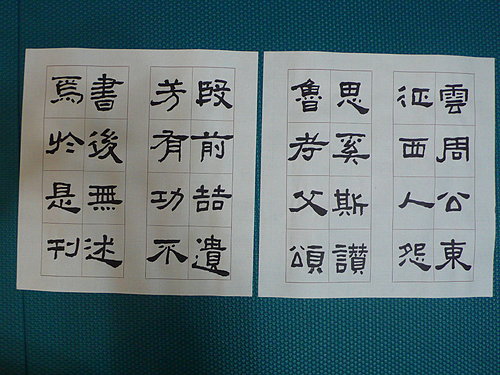 雲周公東
征西人怨
思奚斯讃
魯考父頌
殷前喆遺
芳有功不
書後無述
焉於是刊